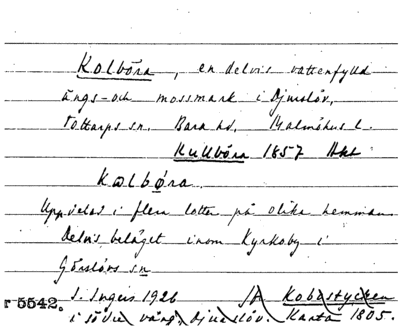 Kolböra, en delvis vattenfylld
ängs- och mossmark i Djurslöv,
Tottarps sn. Bara hd. Malmöhus l.
Kullböra 1857 Akt
Kolbøra
Uppdelad i flera lotter på olika hemmans
Delvis beläget inom Kyrkoby i
Görslövs sn
r 5542. S. Ingers 1926 Kobistycken
i södra vång, Djurslöv. Karta 1805.